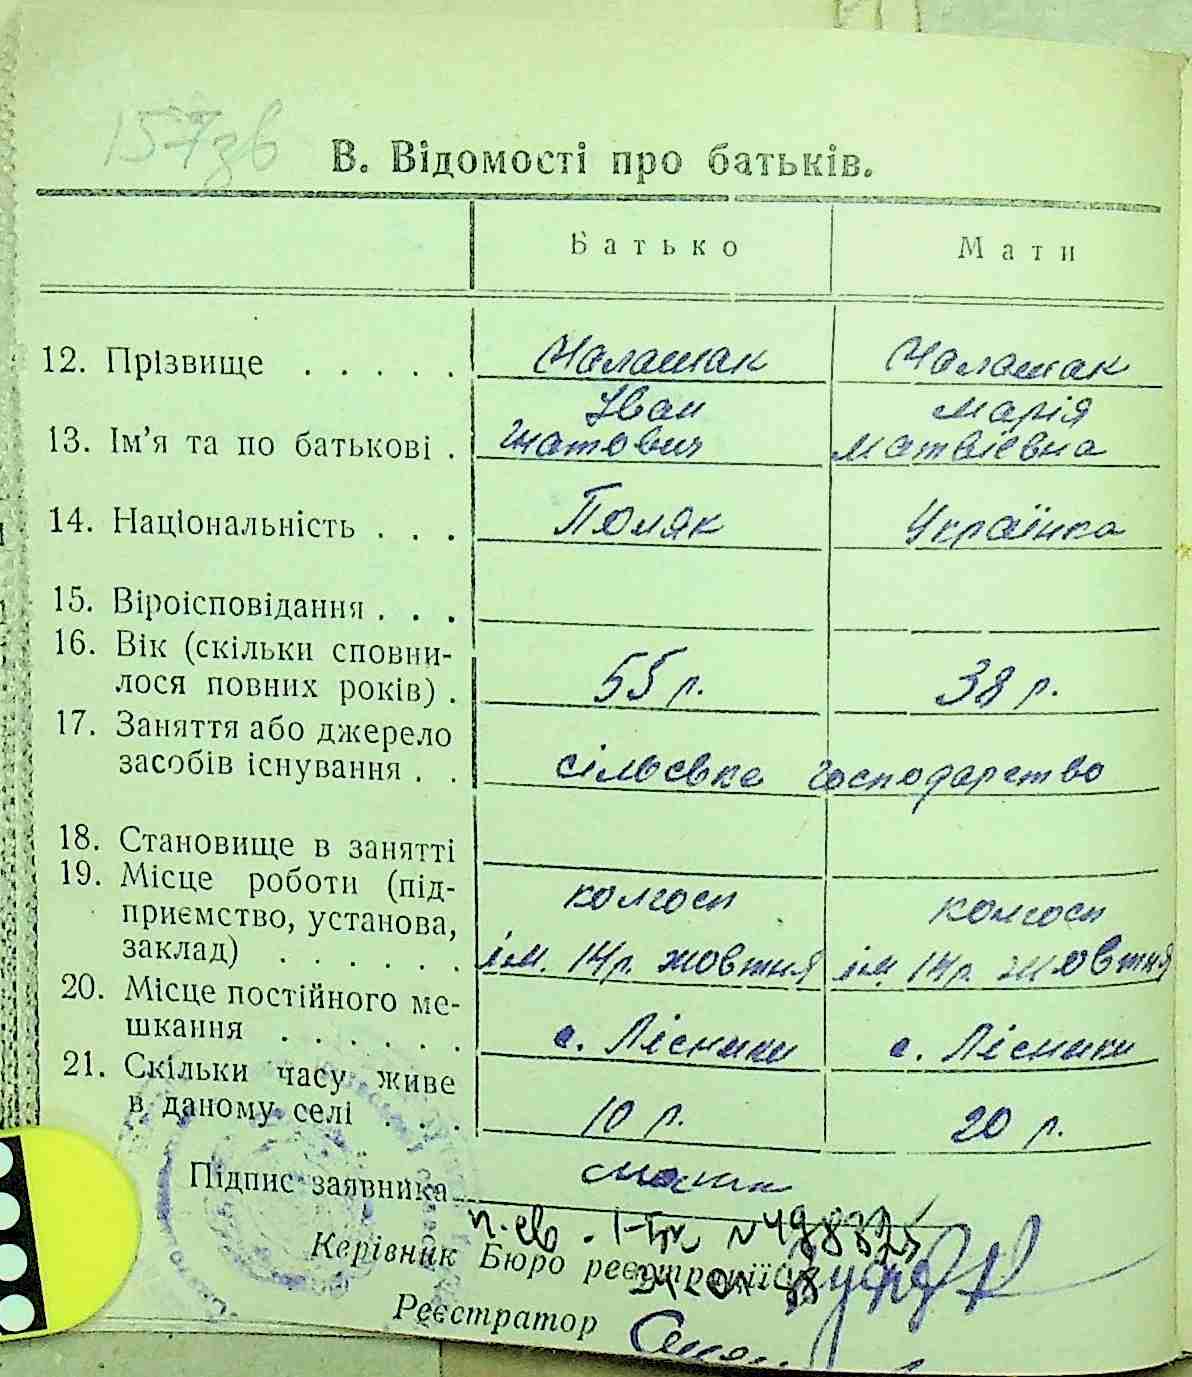 157зв
В. Відомості про батьків.
Батько Мати
12. Прізвище . . . . . Налашак Налашак
Іван Марія
13. Ім'я та по батькові . Гнатович Матвієвна
14. Національність . . . Поляк Українка
15. Віроісповідання . . .
16. Вік (скільки сповни-
лося повних років) . 55 р. 38 р.
17. Заняття або джерело
засобів існування . . сільське господарство
18. Становище в занятті
19. Місце роботи (під- колгосп колгосп
приємство, установа,
заклад) . . . . . . ім. 14 р. жовтня ім. 14 р. жовтня
20. Місце постійного ме-
шкання . . . . . . с. Лісники с. Лісники
21. Скільки часу живе
в даному селі . . . 10 р. 20 р.
Підпис заявника
п. св. № 498325
Керівник Бюро реєстрації
Реєстратор